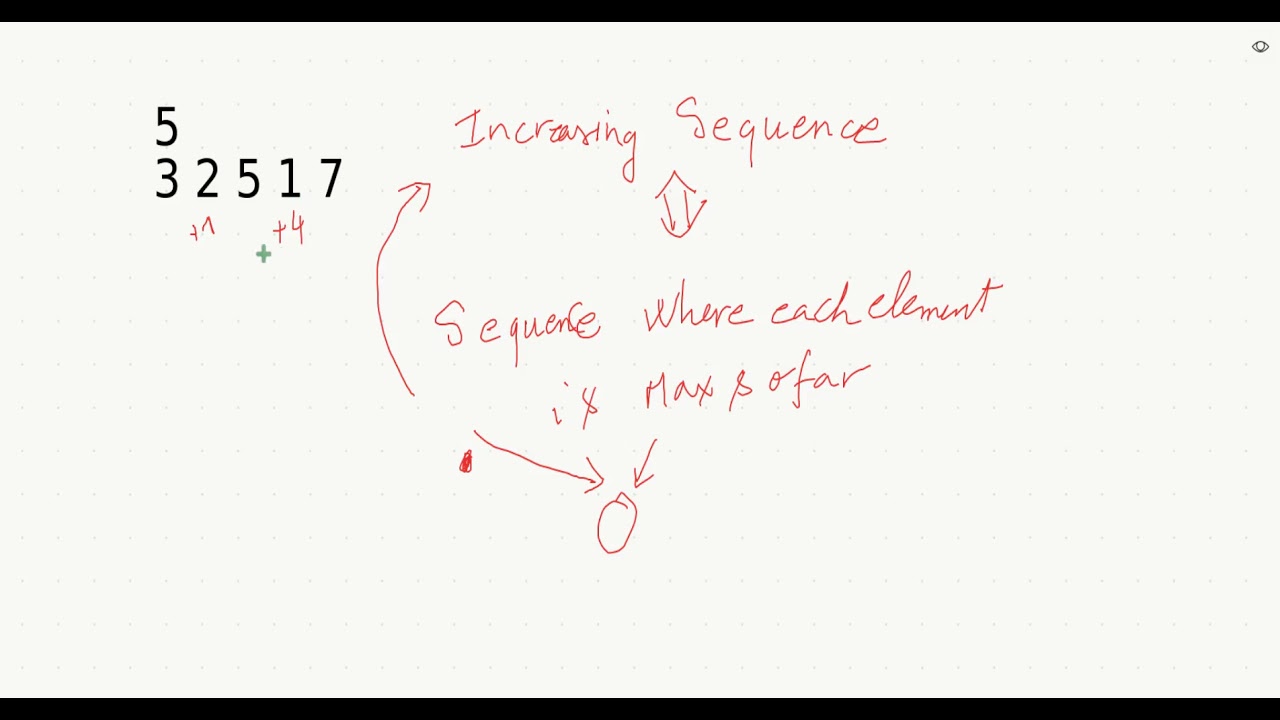 5
3 2 5 1 7
+1 +4
Increasing Sequence
Sequence where each element
is Max so far